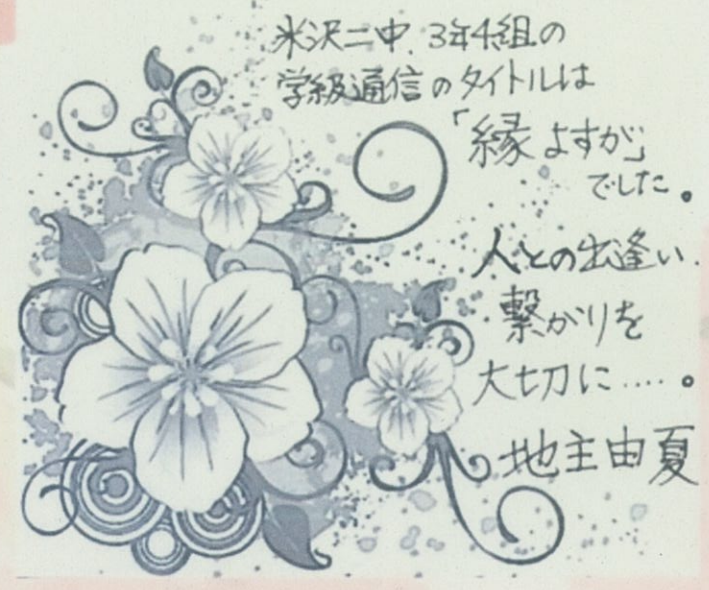 米沢二中.3年4組の
学級通信のタイトルは
「縁 よすが」
でした。
人との出逢い.
繋がりを
大切に....。
地主由夏